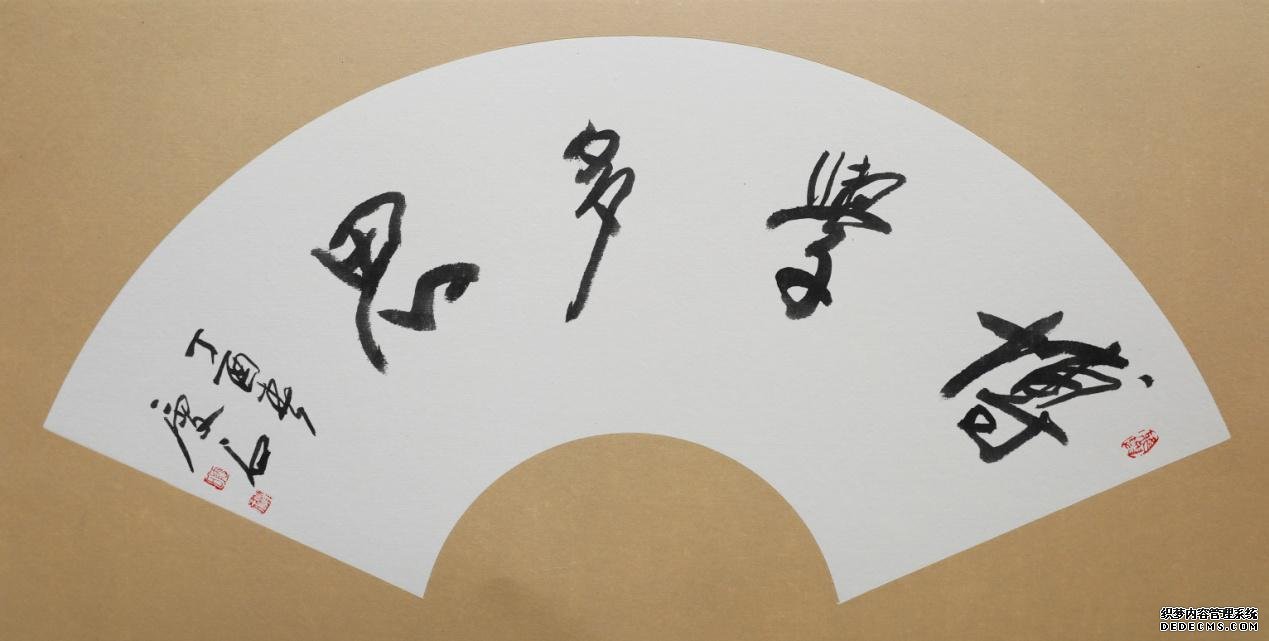 博學多思
丁酉春
织梦内容管理系统
DEDECMS.COM